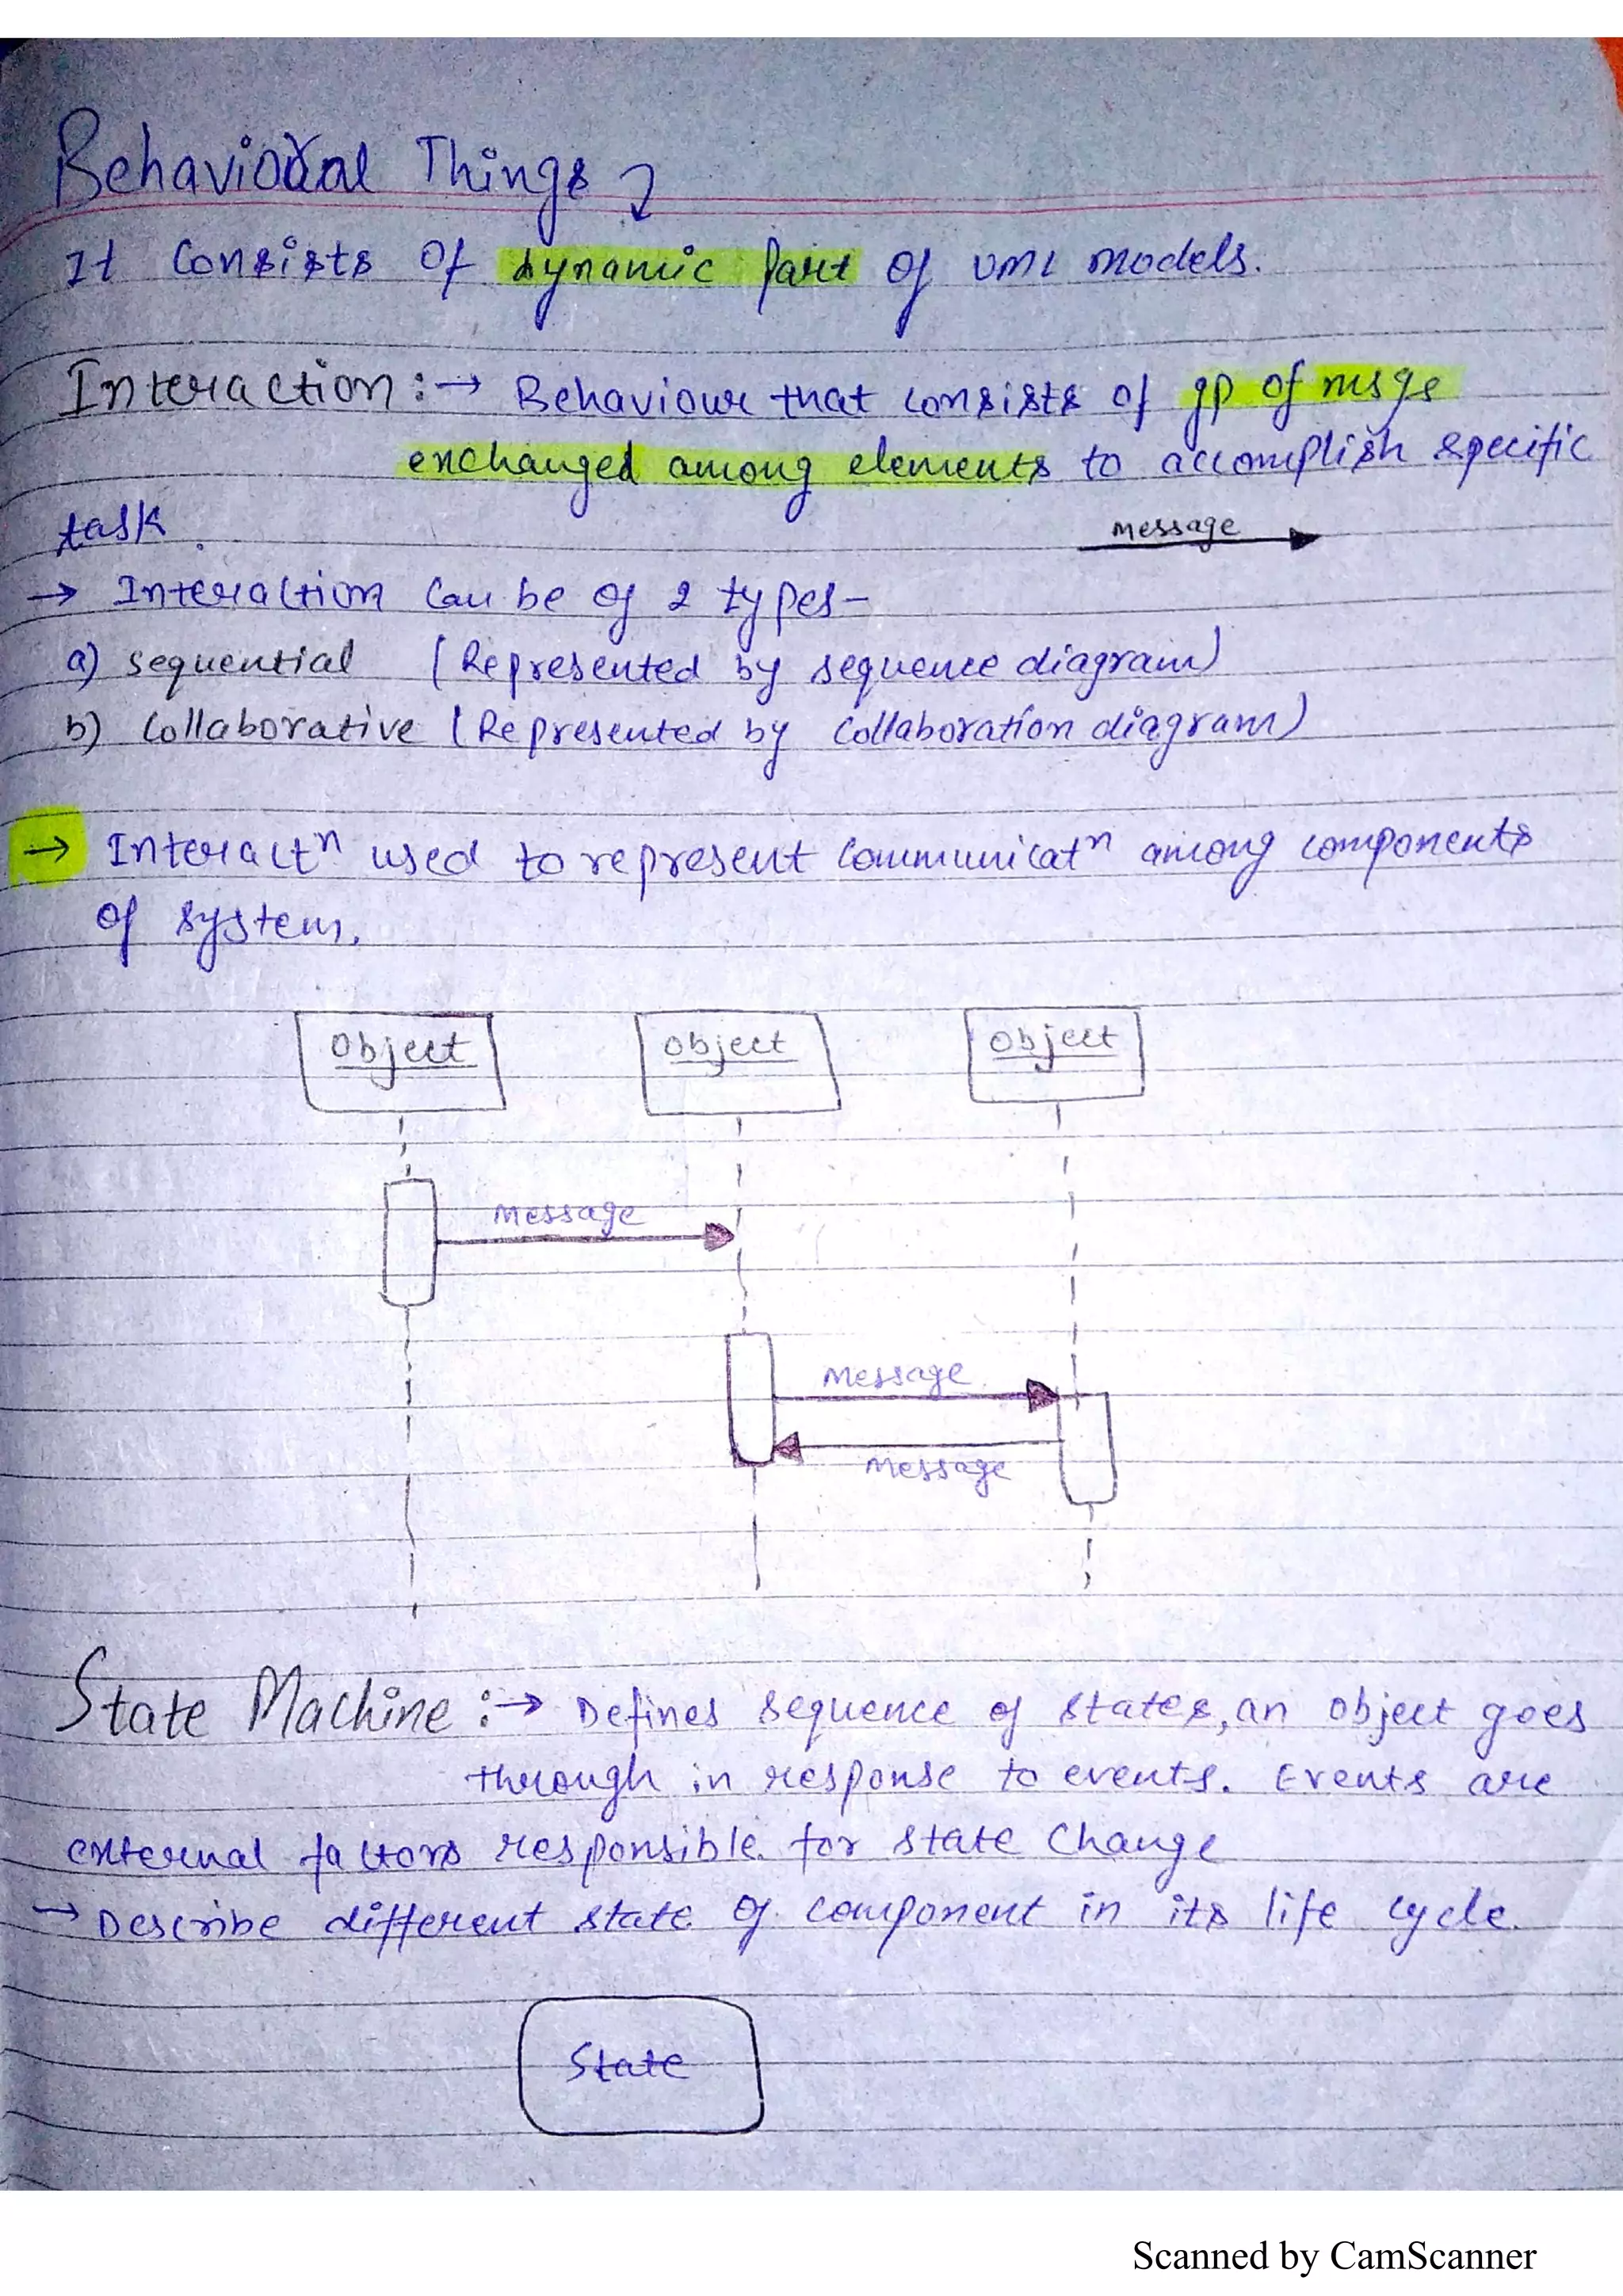 Behavioral Things
It Consists of dynamic part of UML models.
Interaction :→ Behaviour that consists of gp of msgs
exchanged among elements to accomplish specific
task.
message
→ Interaction Can be of 2 types-
a) sequential (Represented by sequence diagram)
b) Collaborative (Represented by Collaboration diagram)
→ Interactⁿ used to represent Communicatⁿ among components
of system.
Object object object
Message
Message
Message
State Machine :→ Defines sequence of states, an object goes
through in response to events. Events are
external factors responsible for state Change
→ Describe different state of component in its life cycle.
State
Scanned by CamScanner